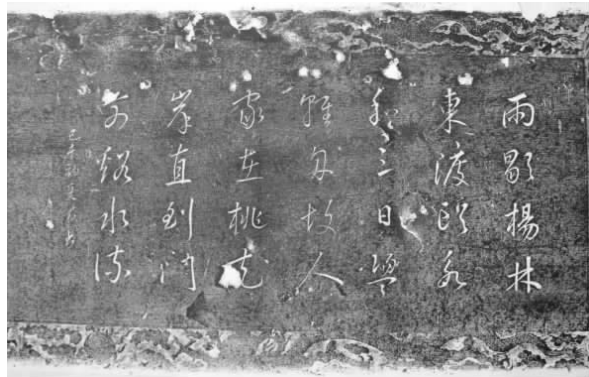 雨歇楊林
東渡頭永
和三日盪
輕舟故人
家在桃花
岸直到門
前谿水流